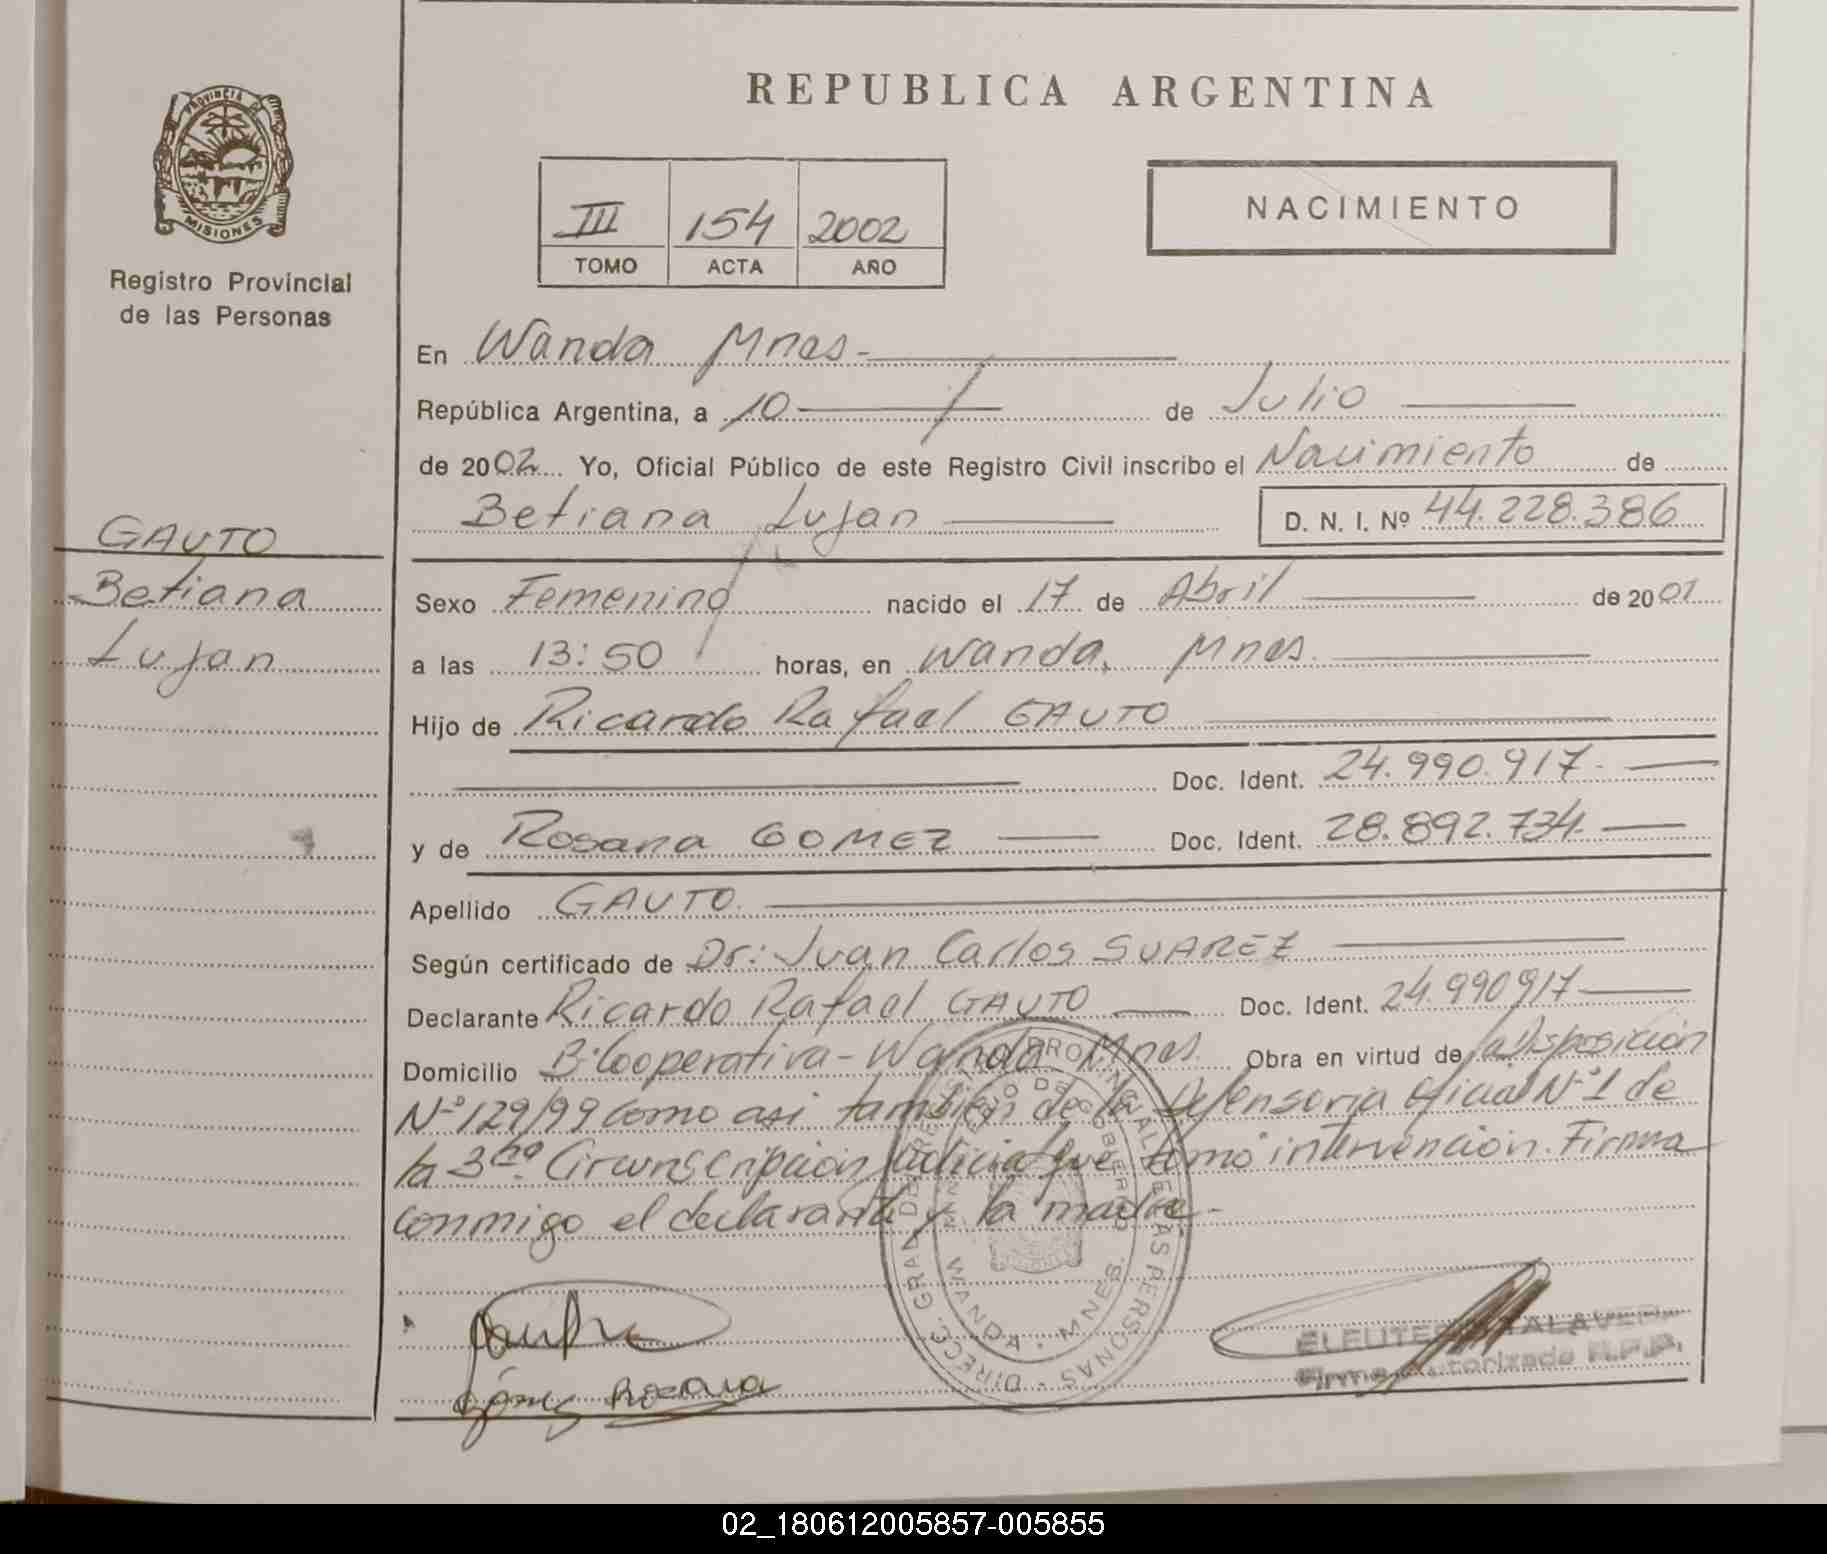 REPUBLICA ARGENTINA
PROVINCIA DE
MISIONES
Registro Provincial
de las Personas
III 154 2002
TOMO ACTA AÑO
NACIMIENTO
En Wanda Mnes.
República Argentina, a 10 de Julio
de 2002 Yo, Oficial Público de este Registro Civil inscribo el Nacimiento de
Betiana Lujan D. N. I. Nº 44.228.386
GAUTO
Betiana
Lujan
Sexo Femenino nacido el 17 de Abril de 2001
a las 13:50 horas, en Wanda, Mnes.
Hijo de Ricardo Rafael GAUTO
Doc. Ident. 24.990.917.
y de Rosana GOMEZ Doc. Ident. 28.892.734.
Apellido GAUTO.
Según certificado de Dr: Juan Carlos SUAREZ
Declarante Ricardo Rafael GAUTO Doc. Ident. 24.990917
Domicilio Bº Cooperativa - Wanda Mnes. Obra en virtud de la Disposición
Nº 129/99 como asi también de la Defensoria Oficial Nº 1 de
la 3ra Circunscripción Judicial que tomo intervención. Firma
conmigo el declarante y la madre.
Gómez Rosana
DIRECC. GRAL. DE REG. PROVINCIAL DE LAS PERSONAS
WANDA - MNES.
Firma Autorizada R.P.P.
02_180612005857-005855